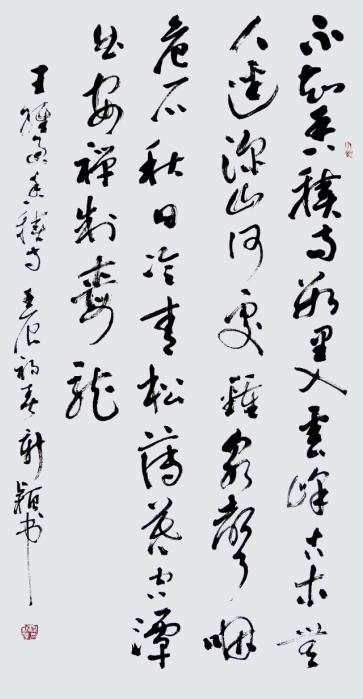 不知香積寺數里入雲峰古木無
人逕深山何處鐘泉聲咽
危石秋日冷青松薄暮空潭
曲安禪制毒龍
王維過香積寺 壬辰初春 新穎书